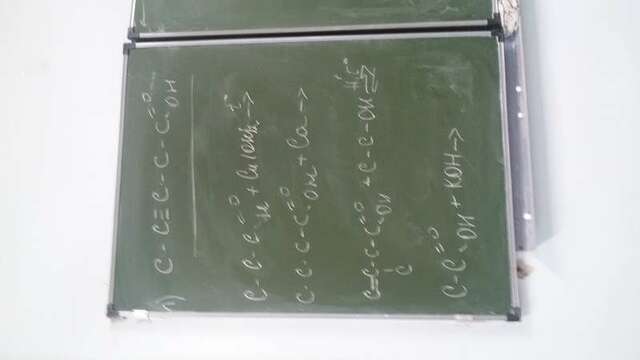 п) C - C ≡ C - C - C =O OH
C - C - C =O H + Cu(OH)₂ t° →
C - C - C - C =O OH + Ca →
C = C - C - C =O OH + C - C - OH H⁺, t° ⇌
C
C - C =O OH + KOH →